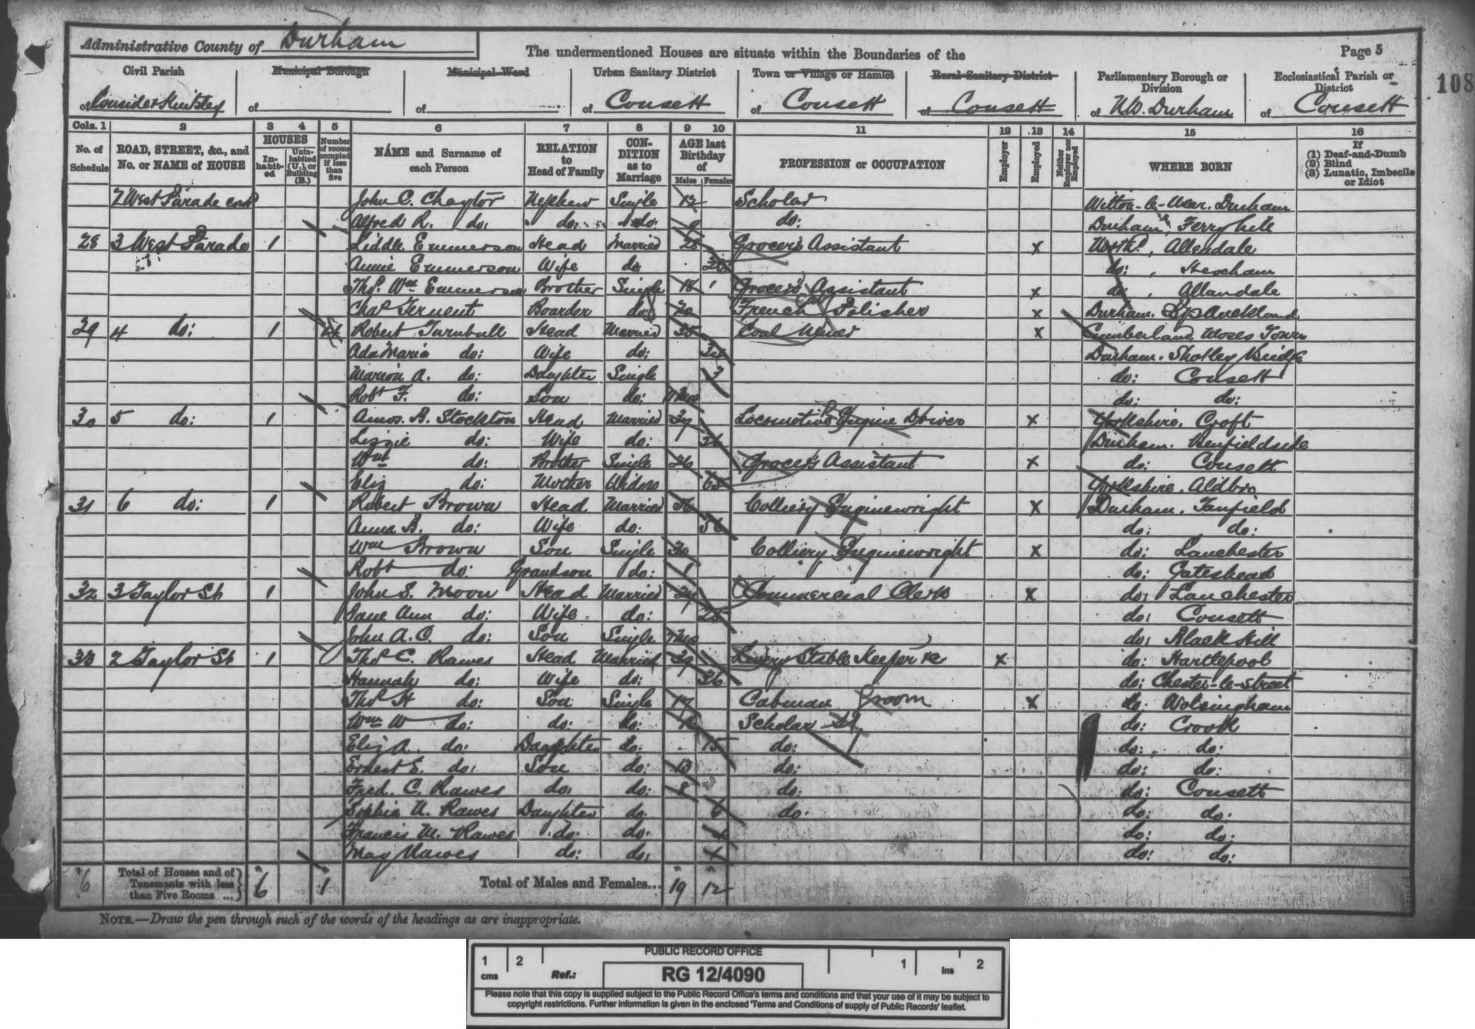 Administrative County of Durham
The undermentioned Houses are situate within the Boundaries of the
Page 5
108
Civil Parish Municipal Borough Municipal Ward Urban Sanitary District Town or Village or Hamlet Rural Sanitary District Parliamentary Borough or Division Ecclesiastical Parish or District
of of of of Consett of Consett of Consett of N.W. Durham of Consett
Cols. 1 2 3 4 5 6 7 8 9 10 11 12 13 14 15 16
No. of Schedule ROAD, STREET, &c., and No. or NAME of HOUSE HOUSES Inhabited Uninhabited (U.), or Building (B.) Number of rooms occupied if less than five NAME and Surname of each Person RELATION to Head of Family CONDITION as to Marriage AGE last Birthday of Males Females PROFESSION or OCCUPATION Employer Employed Neither Employer nor Employed WHERE BORN If (1) Deaf-and-Dumb (2) Blind (3) Lunatic, Imbecile or Idiot
7 West Parade cont John C. Chaytor Nephew Single 12 Scholar Witton-le-Wear, Durham
Alfred R. do: do: do: do: Durham, Ferryhill
28 3 West Parade 1 Liddle Emmerson Head Married 28 Grocer's Assistant X Allendale
Annie Emmerson Wife do do: Hexham
Thos. Wm Emmerson Brother Single 18 Grocer's Assistant X do Allandale
Boarder do 20 French Polisher X Durham.
29 4 do: 1 Robert Turnbull Head Married 35 Coal Miner X Cumberland
Ada Maria do: Wife do: Durham. Shotley Bridge
Marion A. do: Daughter Single 7 do: Consett
Robt F. do: Son do: do: do:
30 5 do: 1 Amos A. Stockton Head Married 39 Locomotive Engine Driver X Yorkshire. Croft
Lizzie do: Wife do: Durham.
Wm do: Brother Single 26 Grocer's Assistant X do: Consett
Eliz do: Mother Widow 65 Yorkshire. Aldbro
31 6 do: 1 Robert Brown Head Married 56 Colliery Enginewright X Durham. Tanfield
Anna do: Wife do: 56 do: do:
Wm Brown Son Single 30 Colliery Enginewright X do: Lanchester
Robt do Grandson do: 1 do: Gateshead
32 3 Taylor St 1 John S. Moon Head Married Commercial Clerk X do: Lanchester
Jane Ann do: Wife. do: do: Consett
John A. C. do: Son Single do: Black hill
33 2 Taylor St 1 Thos C. Rawes Head Married 39 Livery Stable Keeper X do: Hartlepool
Hannah do: Wife do: 36 do: Chester-le-street
Thos H do: Son Single 17 Cabman Groom X do: Wolsingham
Wm W do: do: do: Scholar do: Crook
Eliz A. do: Daughter do. 15 do: do: do:
Ernest E. do: Son do: 13 do: do: do:
Fred. C. Rawes do: do: 8 do: do: Consett
Sophia A. Rawes Daughter do. 6 do: do: do:
Francis M. Rawes do: do. do: do:
May Rawes do: do: do: do:
6 Total of Houses and of Tenements with less than Five Rooms ... 6 1 Total of Males and Females... 19 12
NOTE.—Draw the pen through such of the words of the headings as are inappropriate.
PUBLIC RECORD OFFICE
1 cms 2 Ref.: RG 12/4090 1 Ins 2
Please note that this copy is supplied subject to the Public Record Office's terms and conditions and that your use of it may be subject to
copyright restrictions. Further information is given in the enclosed 'Terms and Conditions of supply of Public Records' leaflet.